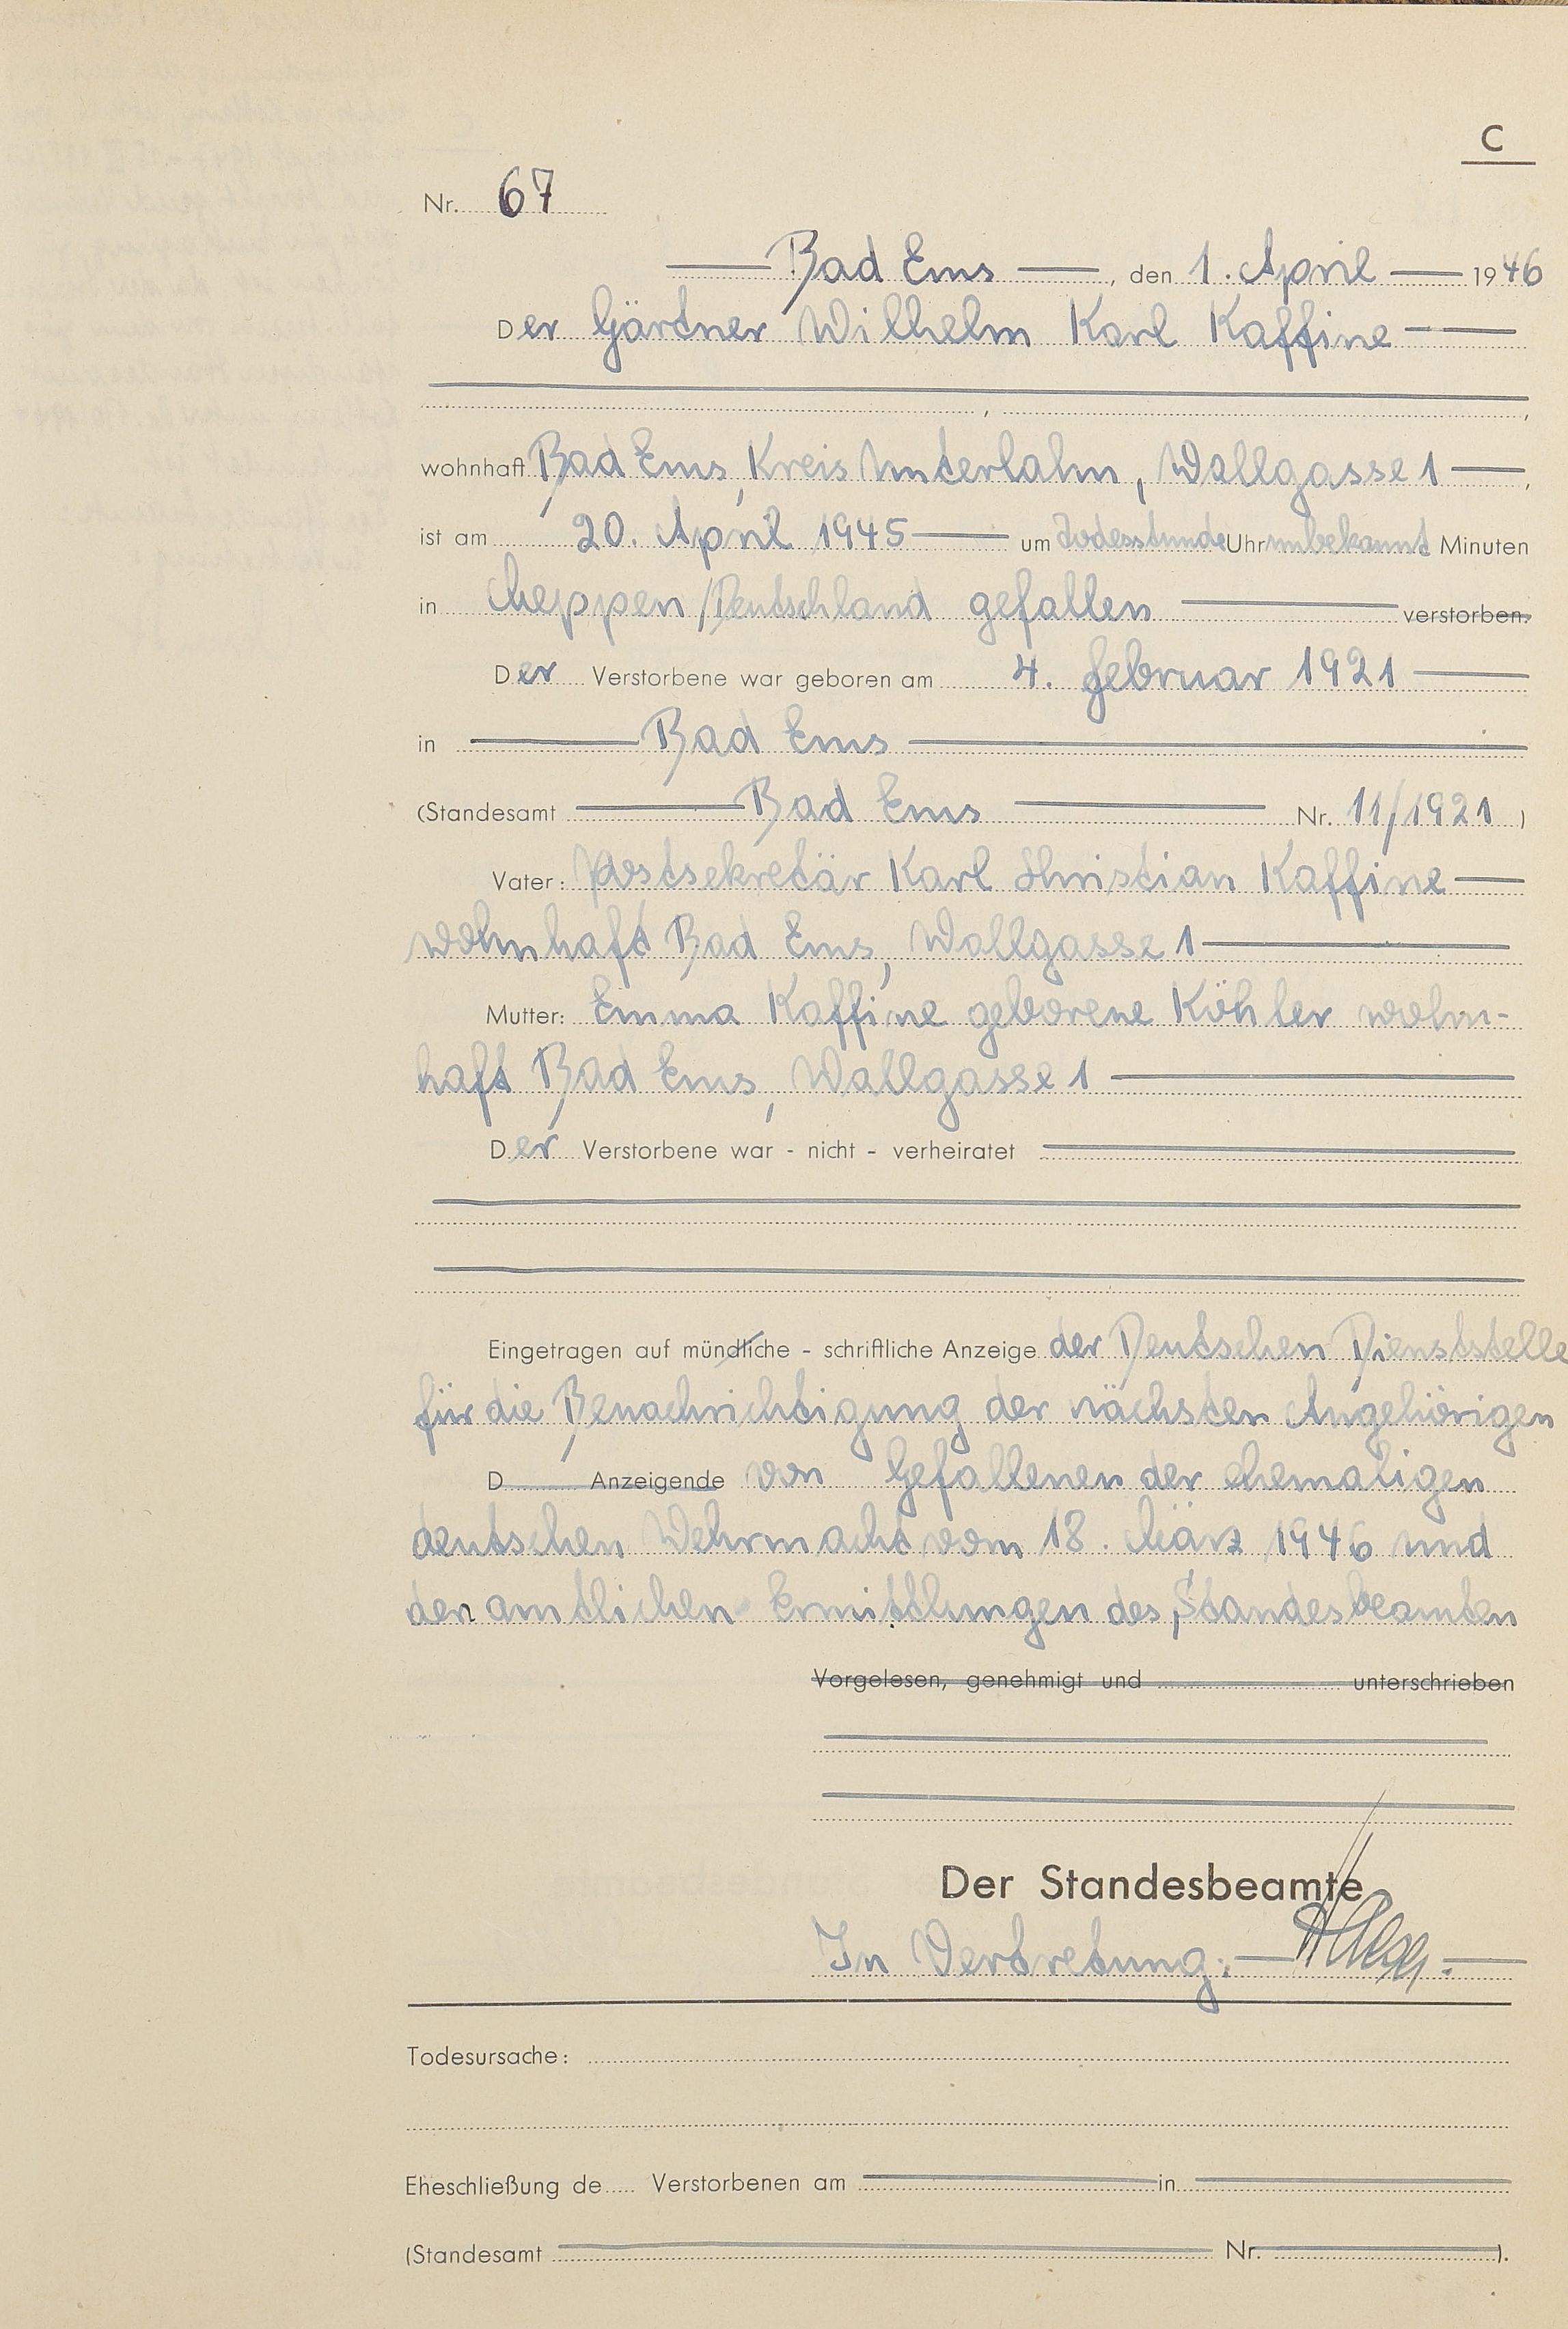 C
Nr. 67
Bad Ems, den 1. April 1946
Der Gärtner Wilhelm Karl Kaffine
,
wohnhaft Bad Ems, Kreis Unterlahn, Wallgasse 1,
ist am 20. April 1945 um Todesstunde Uhr unbekannt Minuten
in Meppen/Deutschland gefallen verstorben.
Der Verstorbene war geboren am 4. Februar 1921
in Bad Ems
(Standesamt Bad Ems Nr. 11/1921)
Vater: Postsekretär Karl Christian Kaffine
wohnhaft Bad Ems, Wallgasse 1
Mutter: Emma Kaffine geborene Köhler wohn-
haft Bad Ems, Wallgasse 1
Der Verstorbene war - nicht - verheiratet
Eingetragen auf mündliche - schriftliche Anzeige der Deutschen Dienststelle
für die Benachrichtigung der nächsten Angehörigen
D Anzeigende von Gefallenen der ehemaligen
deutschen Wehrmacht vom 18. März 1946 und
den amtlichen Ermittlungen des Standesbeamten
Vorgelesen, genehmigt und unterschrieben
Der Standesbeamte
In Vertretung:
Todesursache:
Eheschließung de Verstorbenen am in
(Standesamt Nr. ).